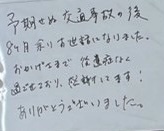 予期せぬ交通事故の後
8ヶ月余りお世話になりました。
おかげさまで後遺症なく
過ごせており、感謝してます!
ありがとうございました。